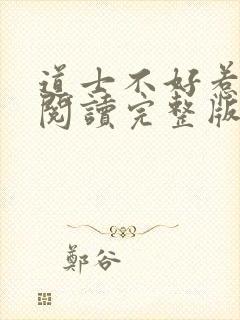 道士不好惹
閱讀完整版
鄭谷